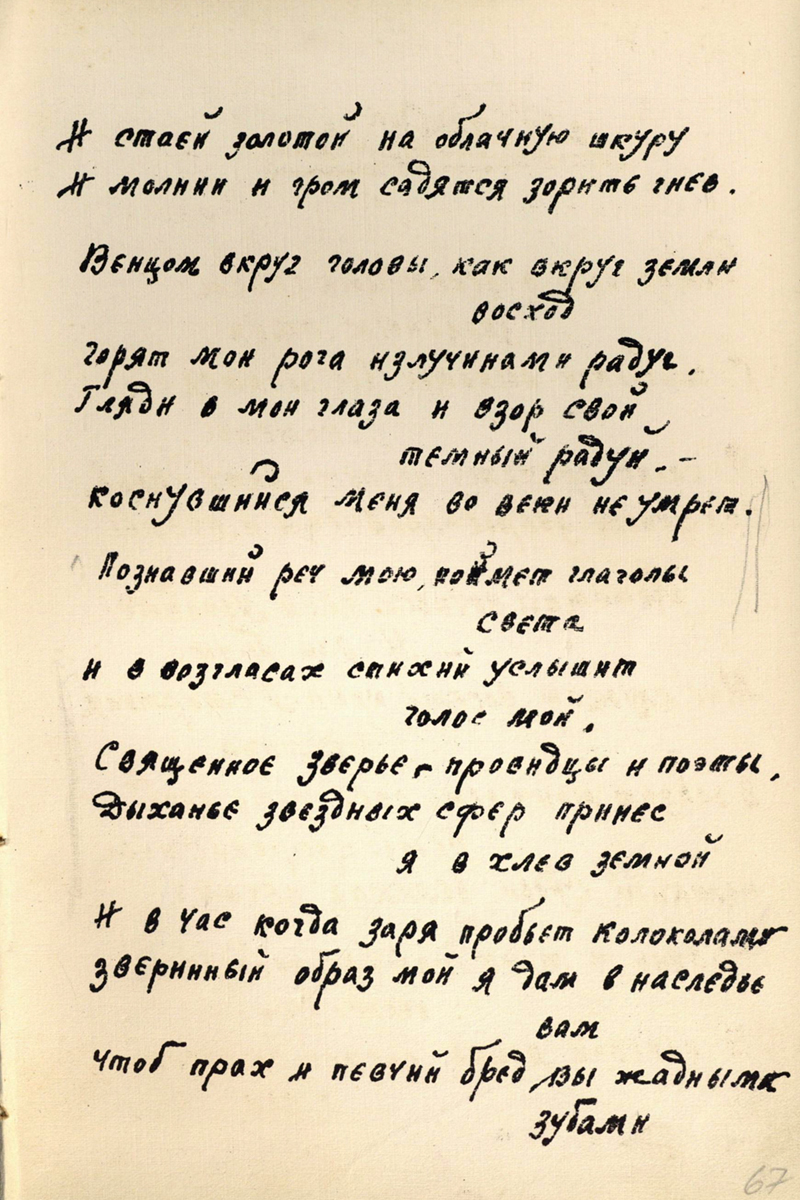 И стаей золотой на облачную шкуру
И молнии и гром садятся зорить гнев.
Венцом вкруг головы, как вкруг земли
восход
Горят мои рога излучинами радуг.
Гляди в мои глаза и взор свой
темный радуй. –
коснувшийся меня во веки не умрет.
Познавший реч мою, поймет глаголы
света
и в возгласах стихий услышит
голос мой.
Священное зверье – провидцы и поэты,
Дыханье звездных сфер принес
я в хлев земной
И в час когда заря пробьет колоколами
зверинный образ мой я дам в наследье
вам
чтоб прах и певчий бред вы жадными
зубами
67